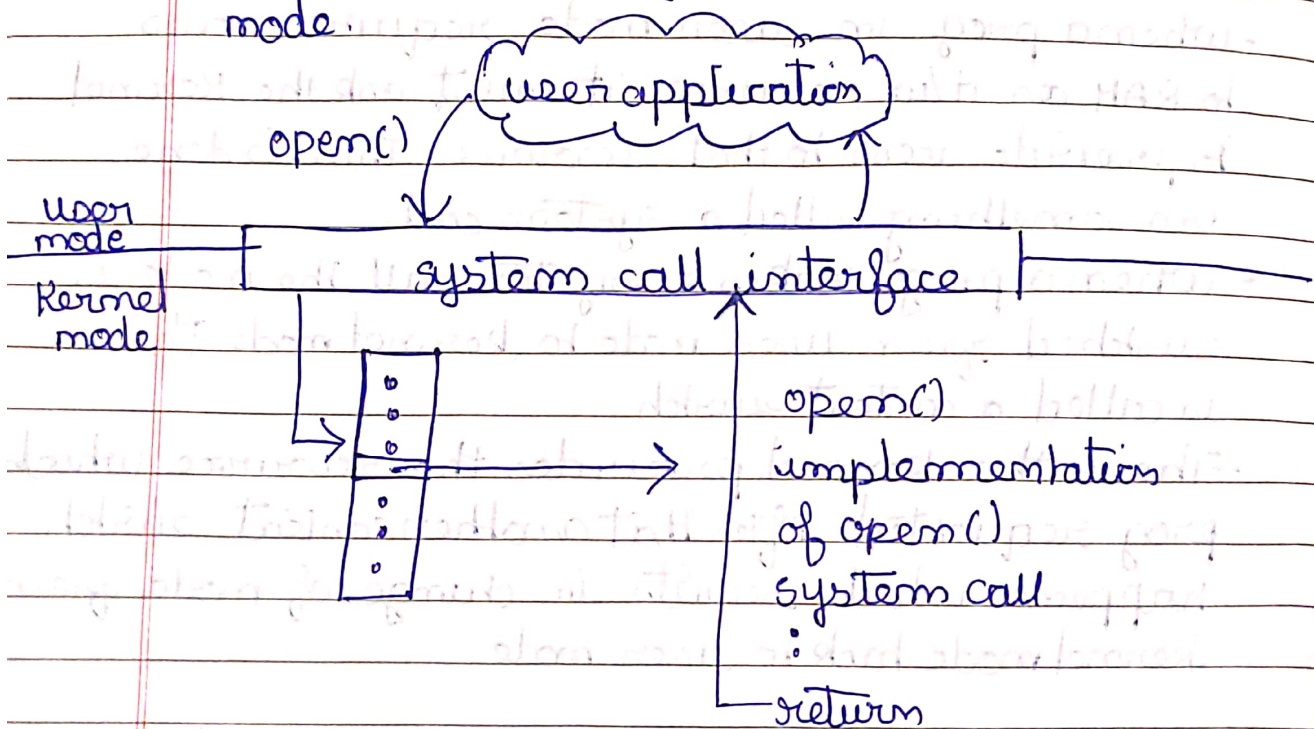 mode.
user application
open()
user
mode
system call interface
Kernel
mode
open()
implementation
of open()
system call
:
return